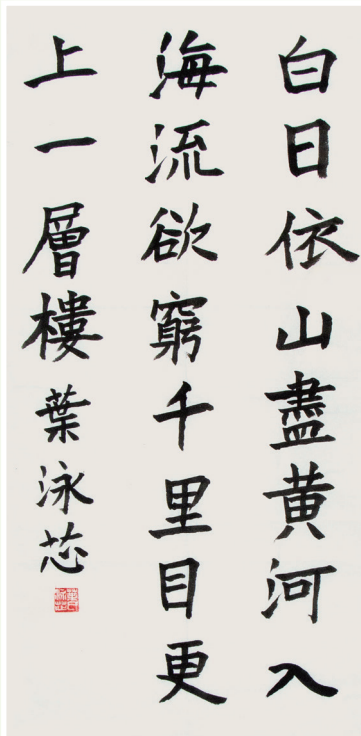 白日依山盡黄河入
海流欲窮千里目更
上一層樓葉泳芯